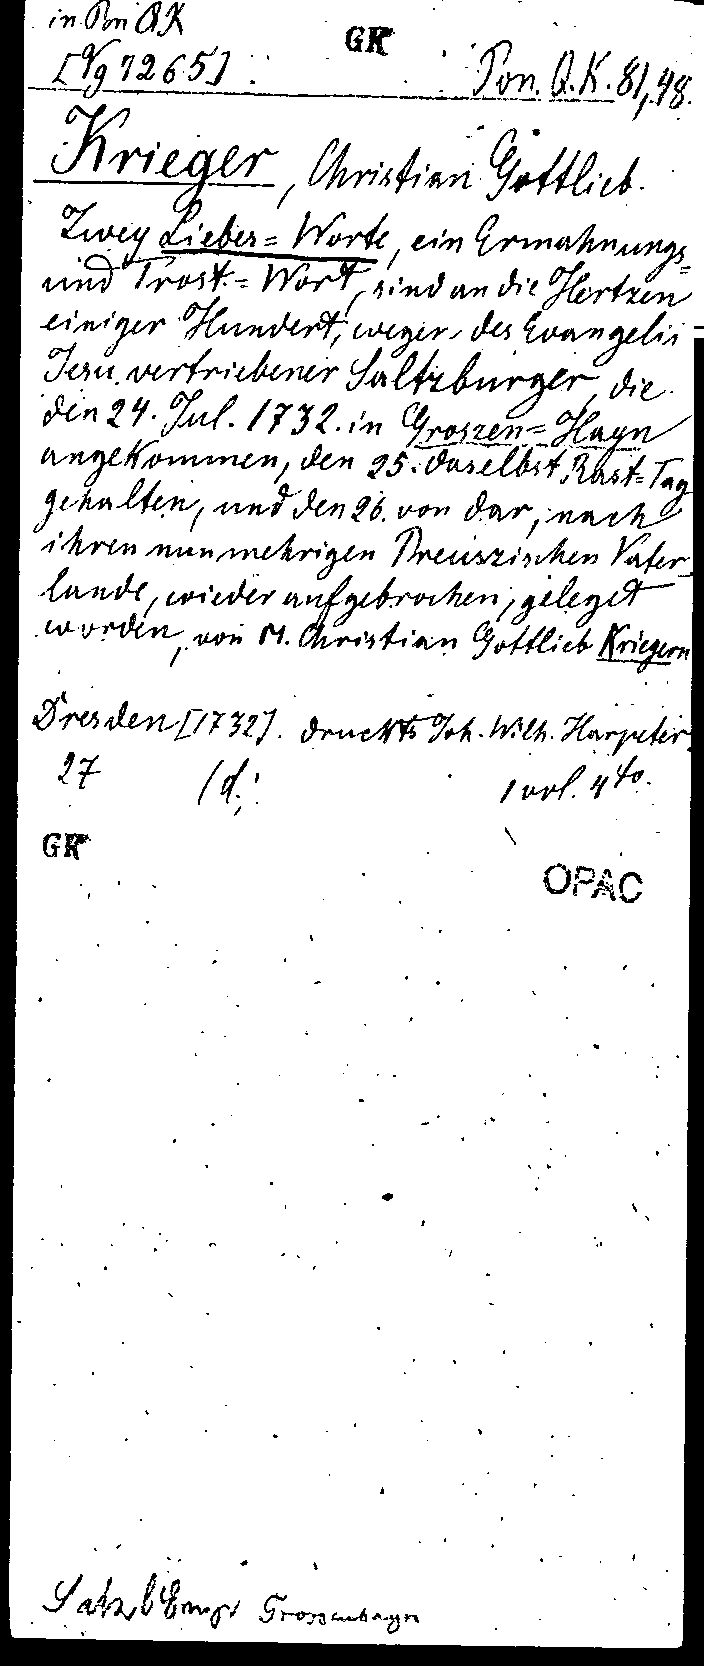 in Pon QK
GK
[Vg 7265]
Pon. Q.K. 81,48.
Krieger, Christian Gottlieb.
Zwey Liebes=Worte, ein Ermahnungs=
und Trost=Wort, sind an die Hertzen
einiger Hundert, wegen des Evangelii
Jesu vertriebener Saltzburger, die
den 24. Jul. 1732. in Groszen=Hayn
angekommen, den 25. daselbst Rast=Tag
gehalten, und den 26. von dar, nach
ihren nunmehrigen Preuszischen Vater-
lande, wieder aufgebrochen, geleget
worden, von M. Christian Gottlieb Kriegern
Dresden [1732]. druckts Joh. Wilh. Harpeter.
27 1 vol. 4to.
GK
OPAC
Grossenhayn